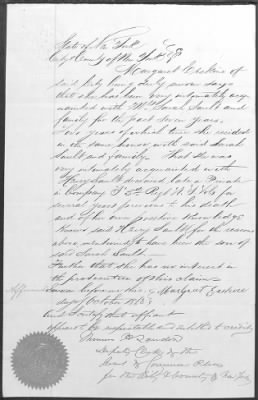 State of New York
City & County of New York } SS
Margaret Erskine of
said City being duly sworn says
that she has been very intimately acqu
ainted with Mrs Sarah Sault and
family for the past seven years.
Two years of which time she resided
in the same house with said Sarah
Sault and family. That she was
very intimately acquainted with
Henry Sault deceased late a Private
in Company F 5th Regt N.Y. Vols for
several years previous to his death
and of her own positive knowledge
knows said Henry Sault for the reasons
above mentioned to have been the son of
said Sarah Sault.
Further that she has no interest in
the prosecution of this claim.
Sworn before me this } Margaret Erskine
day of October 1863
and I certify that affiant
affiant is respectable and entitled to credit
Deputy Clerk of the
Court of Common Pleas
for the City & County of New York